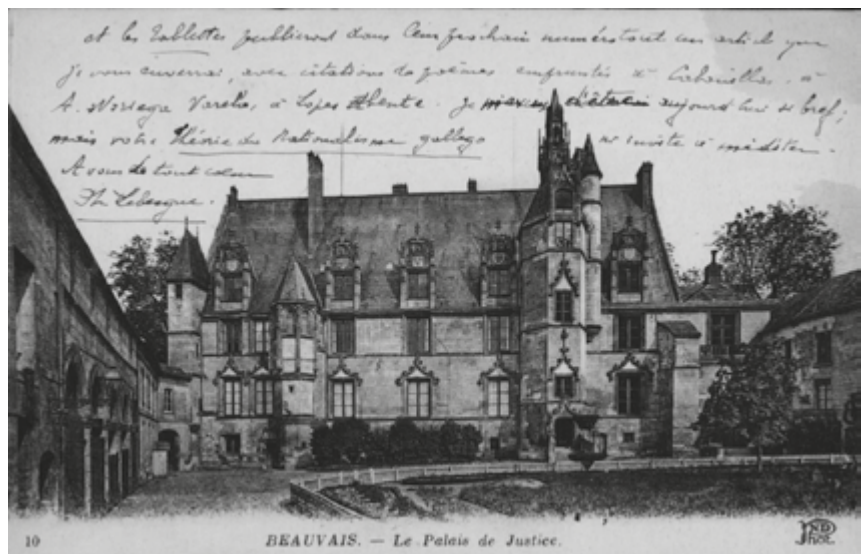 et les Tablettes publieront dans leur prochain numéro tout un article que
je vous enverrai, avec citations de poèmes empruntés à Cabanillas, à
A. Noriega Varela, à Lopez Abente. Je aujourd'hui si bref;
mais votre Théorie du Nationalisme gallego m'invite à méditer.
A vous de tout cœur
Ph Lebesgue.
10
BEAUVAIS. — Le Palais de Justice.
ND
Phot.